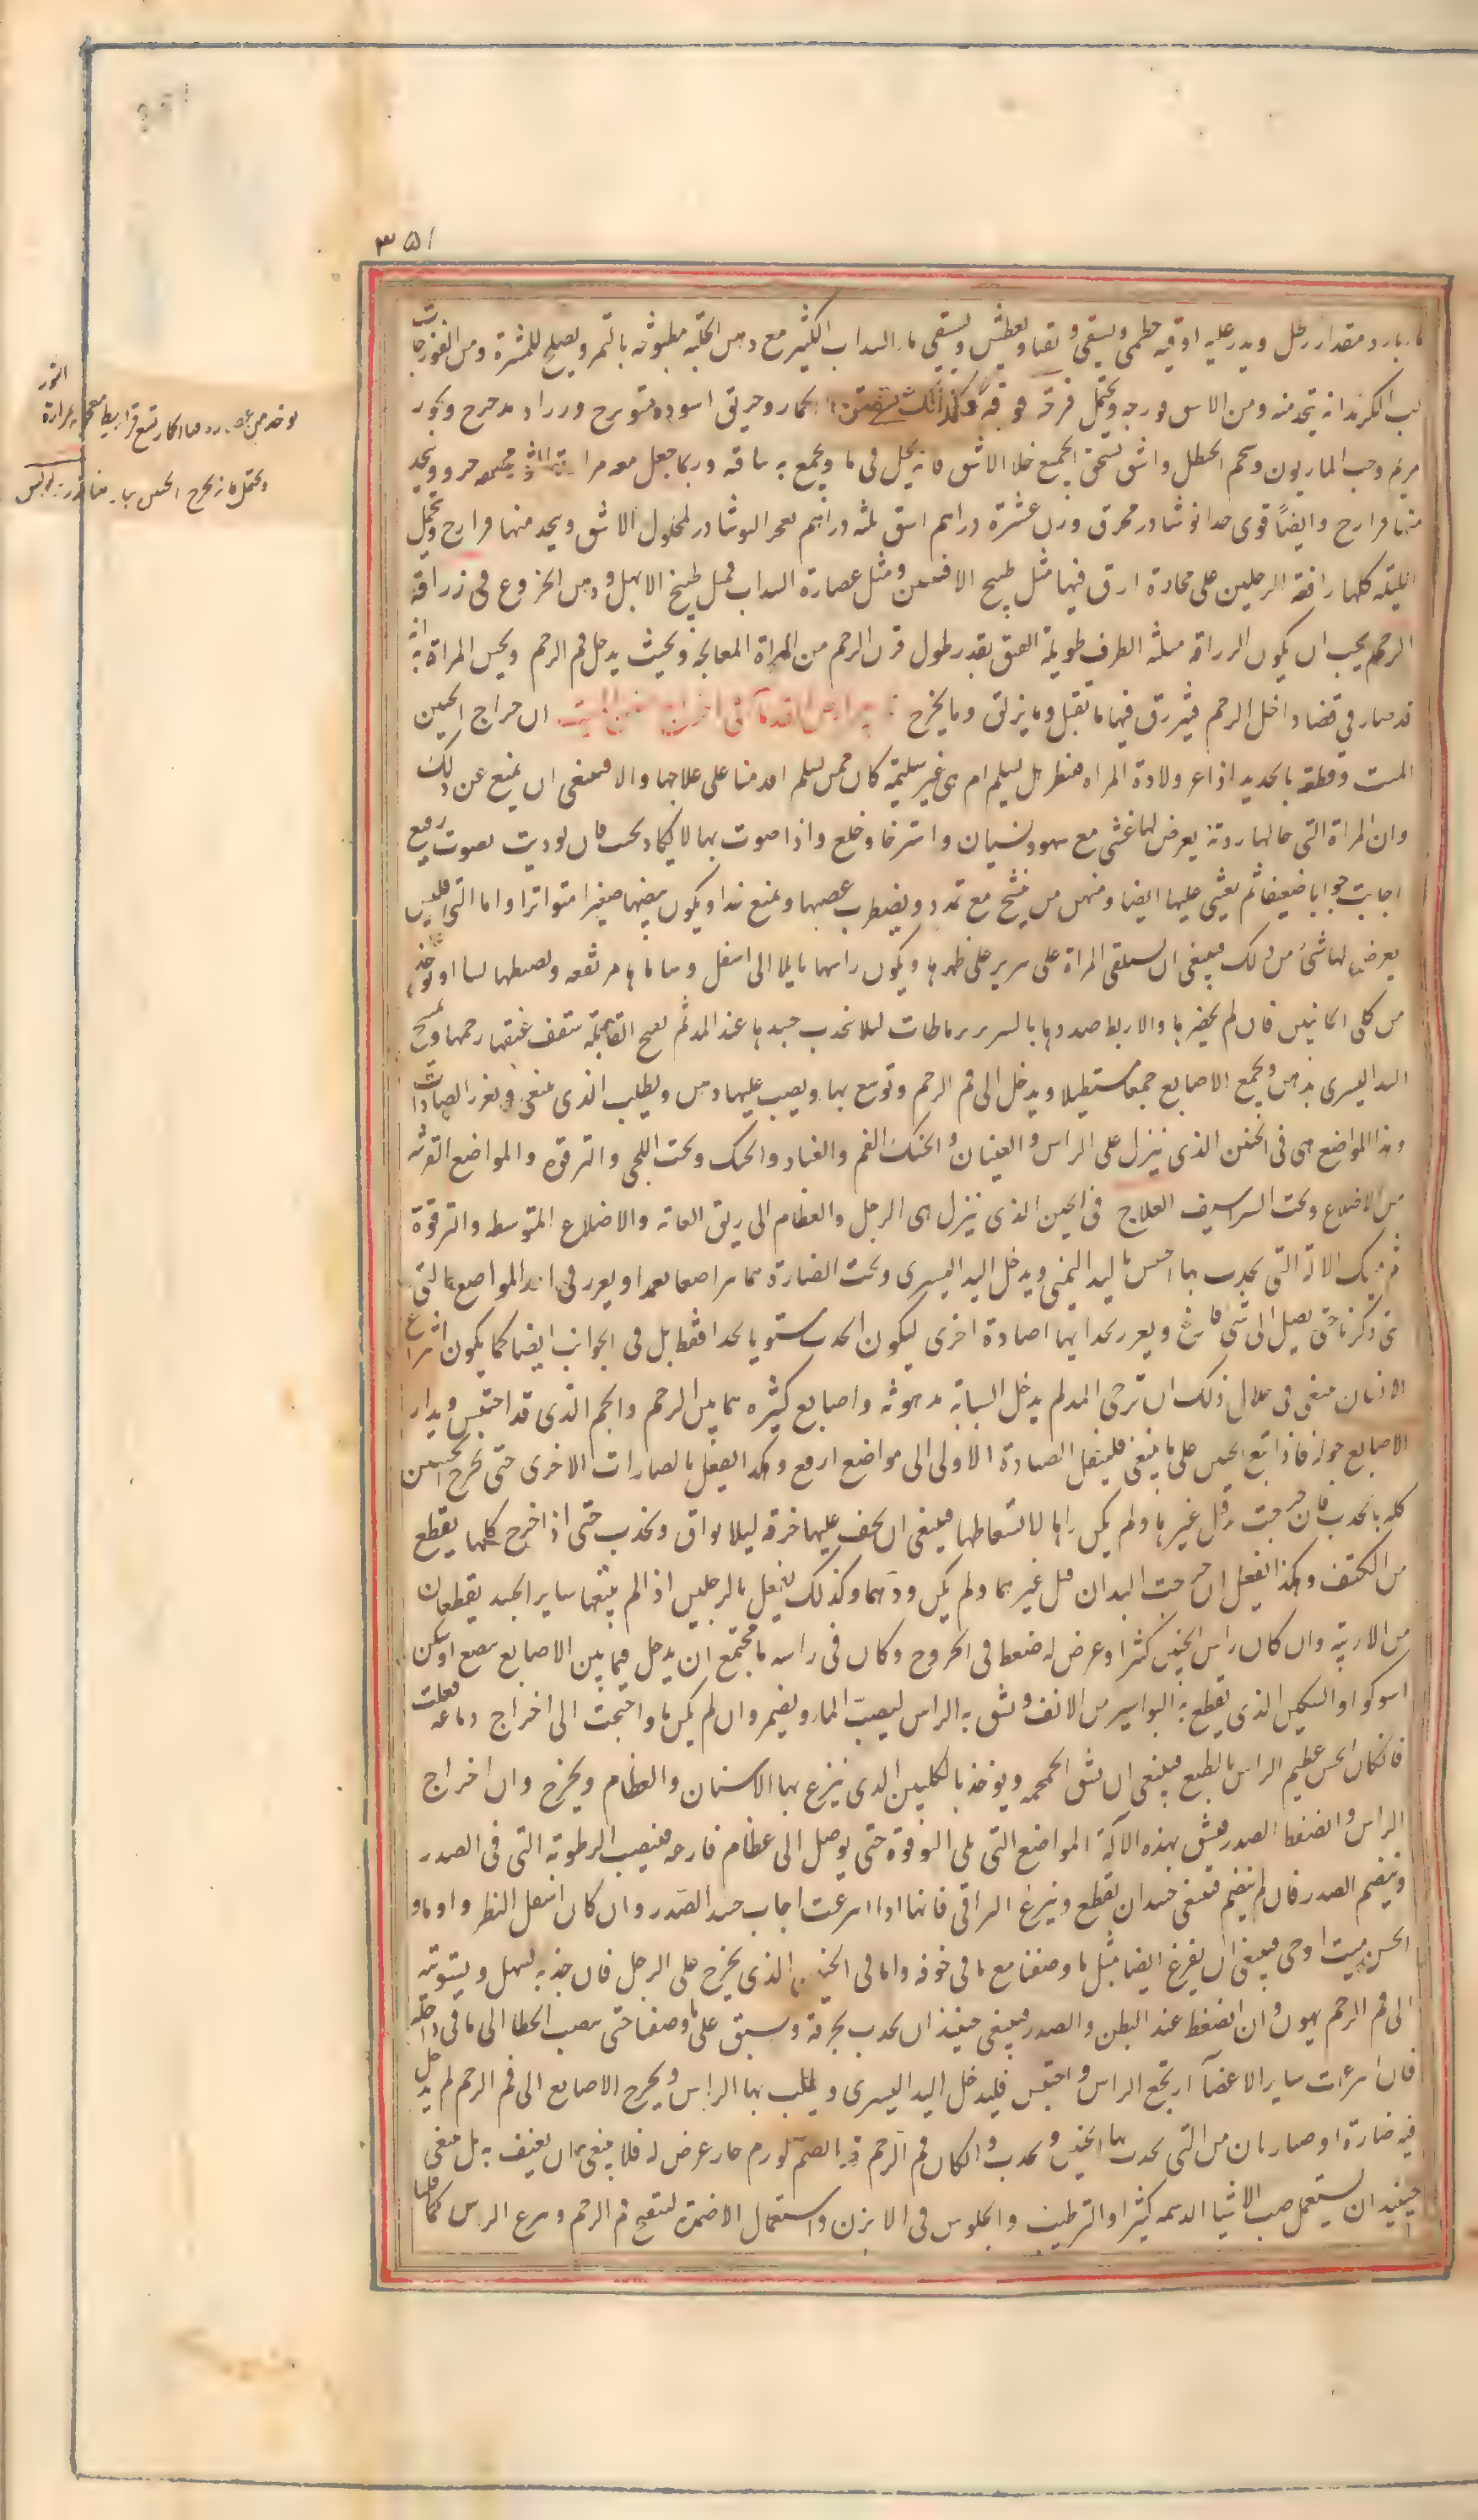 ٣٥١
بارد مقدار رطل ويدر عليه اوقيه خطمى ويسقى و تقيا ويعطش ويسقى ماء السداب الكثير مع دهن الحلبه مطبوخه بالتمر ويصلح للمشمة ومن الفرزجات
يتخد منه ومن الاس فرزجه ويحتمل فوقه وكذلك الحمار وخربق اسود وميويزج وزراوند مدحرج وبخور
مريم وحب المازريون وشحم الحنظل واشق يسحق الجميع خلا الاشق فانه يحل فى ماء ويجمع به ساقه وربما جعل معه مرارة ويتخد
منها فرازج وايضاً قوى جدا نوشادر محرق وزن عشرة دراهم اشق ثلثه دراهم يعجن النوشادر لمحلول الاشق ويتخد منها فرازج ويحتمل
الليله كلها رافعة الرجلين على مخادة ارق فيها مثل طبيخ الافسنتين ومثل عصارة السداب مثل طبيخ الابهل ودهن الخروع فى زراقه
الرحم يجب ان يكون الزراقه مثلثه الطرف طويلة العنق بقدر طول قرن الرحم من المراة المعالجة وبحيث يدخل فم الرحم ويحس المراة انه
قد صار فى فضاء داخل الرحم فيزرق فيها ما يقبل وما يزلق وما يخرج ان اخراج الجنين
الميت وقطعه بالحديد اذا عسر ولادة المراه فينظر هل تسلم ام هى غير سليمة كان ممن تسلم اقدمنا على علاجها والا فينبغى ان يمنع عن ذلك
وان المراة التى حالها ردية يعرض لها غشى مع سهو ونسيان واسترخا وخلع واذا صوت بها لا تكاد تجيب فان نوديت بصوت رفيع
اجابت جوابا ضعيفا ثم يغشى عليها ايضا ومنهن من يتشنج مع تمدد ويضطرب عصبها ويمتنع غذا ويكون نبضها صغيرا متواترا واما التى فليس
يعرض لها شئ من ذلك فينبغى ان تستلقى المراة على سرير على ظهرها ويكون راسها مايلا الى اسفل وساقاها مرتفعه ويضبطها نسا او خدم
من كلى الجانبين فان لم يحضرها والا ربط صدرها بالسرير برباطات ليلا تجذب جسدها عند المد ثم تفتح القابله سقف عنقها رحمها وتمسح
اليد اليسرى بدهن ويجمع الاصابع جمعا مستطيلا ويدخل الى فم الرحم وتوسع بها ويصب عليها دهن ويطلب الذى ينبغى ويغرز الصنارات
وهذه المواضع هى فى الجنين الذى ينزل على الراس والعينان والحنك الفم والقفاد والحنك وتحت اللحى والترقوه والمواضع القريبه
من الاضلاع وتحت الشراسيف العلاج فى الجنين الذى ينزل على الرجل والعظام التى فوق العانه والاضلاع المتوسطه والترقوة
ثم يمسك الالة التى يجذب بها الجنين باليد اليمنى ويدخل اليد اليسرى وتحت الصنارة فيما بين اصابعه ويغرز فى احد المواضع التى
قد ذكرنا حتى يصل الى شئ فارغ ويغرز بحذايها صنارة اخرى ليكون الجذب مستويا فقط بل فى الجوانب ايضا كما يكون انتزاع
الاسنان ينبغى فى خلال ذلك ان ترخى المد ثم يدخل السبابة مدهونه واصابع كثيره فيما بين الرحم والجسم الذى قد احتبس ويدار
الاصابع حوله فاذا تبع الجنين على ما ينبغى فلينقل الصنارة الاولى الى مواضع ارفع وهكذا يفعل بالصنارات الاخرى حتى يخرج الجنين
كله بالجذب فان خرجت يد قبل غيرها ولم يمكن ردها لانضغاطها فينبغى ان يلف عليها خرقه ليلا يزلق وتجذب حتى اذا خرج كلها يقطع
من الكتف وهكذا يفعل ان خرجت اليدان قبل غيرهما ولم يمكن ردهما وكذلك يفعل بالرجلين اذا لم يتبعهما ساير الجسد يقطعان
من الاربيه وان كان راس الجنين كبيرا وعرض له ضغط فى الخروج وكان فى راسه ما مجتمع ان يدخل فيما بين الاصابع مبضع او سكين
شوكى او السكين الذى يقطع به البواسير من الانف ويشق به الراس لينصب الماء ويضمر وان لم يكن ماء واحتجت الى اخراج دماغه فعلت
فان كان الجنين عظيم الراس بالطبع فينبغى ان يشق الجمجمه ويوخذ بالكلبتين الذى ينزع بها الاسنان والعظام ويخرج وان اخراج
الراس وانضغط الصدر فيشق بهذه الآلة المواضع التى يلى الترقوة حتى يوصل الى عظام فارغه فينصب الرطوبة التى فى الصدر
وينضم الصدر فان لم ينضم فينبغى حينئذ ان يقطع وينزع التراقى فانها اذا انتزعت اجاب حينئذ الصدر وان كان اسفل البطن وارما و
الجنين ميت او حى فينبغى ان يفرغ ايضا بمثل ما وصفنا مع ما فى جوفه واما فى الجنين الذى يخرج على الرجل فان جذبه يسهل وتسويته
الى فم الرحم يهون وان انضغط عند البطن والصدر فينبغى حينئذ ان يجذب بخرقه ويشق على ما وصفنا حتى ينصب الى ما فى داخله
فان انتزعت ساير الاعضآ ارتجع الراس واحتبس فليدخل اليد اليسرى ويطلب بها الراس ويخرج بالاصابع الى فم الرحم ثم يدخل
فيه صنارة او صنارتان من التى يجذب بها الجنين ويجذب وان كان فم الرحم قد انضم لورم حار عرض له فلا ينبغى ان يعنف به بل ينبغى
حينئذ ان يستعمل صب الاشيا الدسمه كثيرا والترطيب والجلوس فى الابزن واستعمال الاضمدة لينفتح فم الرحم وينزع الراس كما قلنا